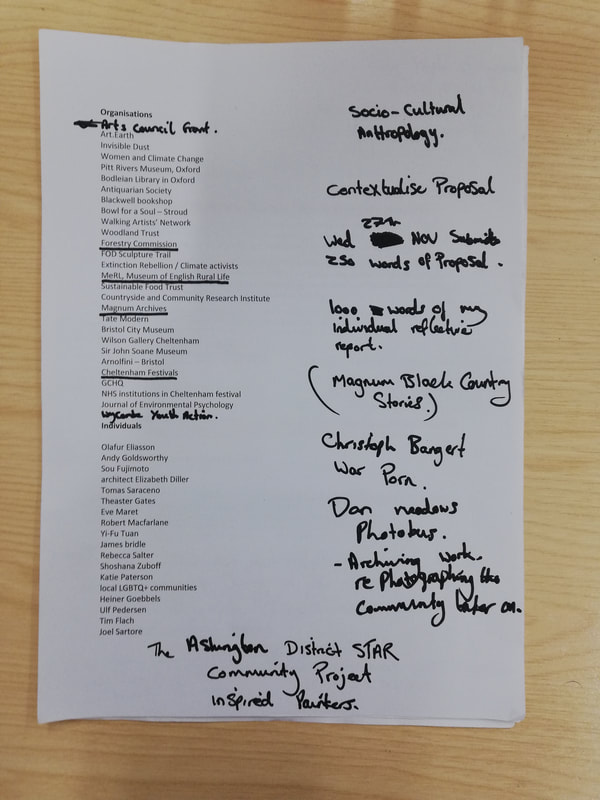 Organisations
Arts Council Grant.
Art.Earth
Invisible Dust
Women and Climate Change
Pitt Rivers Museum, Oxford
Bodleian Library in Oxford
Antiquarian Society
Blackwell bookshop
Bowl for a Soul – Stroud
Walking Artists' Network
Woodland Trust
Forestry Commission
FOD Sculpture Trail
Extinction Rebellion / Climate activists
MeRL, Museum of English Rural Life
Sustainable Food Trust
Countryside and Community Research Institute
Magnum Archives
Tate Modern
Bristol City Museum
Wilson Gallery Cheltenham
Sir John Soane Museum
Arnolfini – Bristol
Cheltenham Festivals
GCHQ
NHS institutions in Cheltenham festival
Journal of Environmental Psychology
Youth Action.
Individuals
Olafur Eliasson
Andy Goldsworthy
Sou Fujimoto
architect Elizabeth Diller
Tomas Saraceno
Theaster Gates
Eve Maret
Robert Macfarlane
Yi-Fu Tuan
James bridle
Rebecca Salter
Shoshana Zuboff
Katie Paterson
local LGBTQ+ communities
Heiner Goebbels
Ulf Pedersen
Tim Flach
Joel Sartore
Socio-Cultural
Anthropology.
Contextualise Proposal
27th
Wed NOV Submit
250 words of Proposal.
1000 words of my
individual reflective
report.
(Magnum Black Country
Stories.)
Christoph Bangert
War Porn.
Dan meadows
Photobus.
- Archiving work.
re Photographing the
Community later on.
The Ashington District STAR
Community Project
inspired Painters.